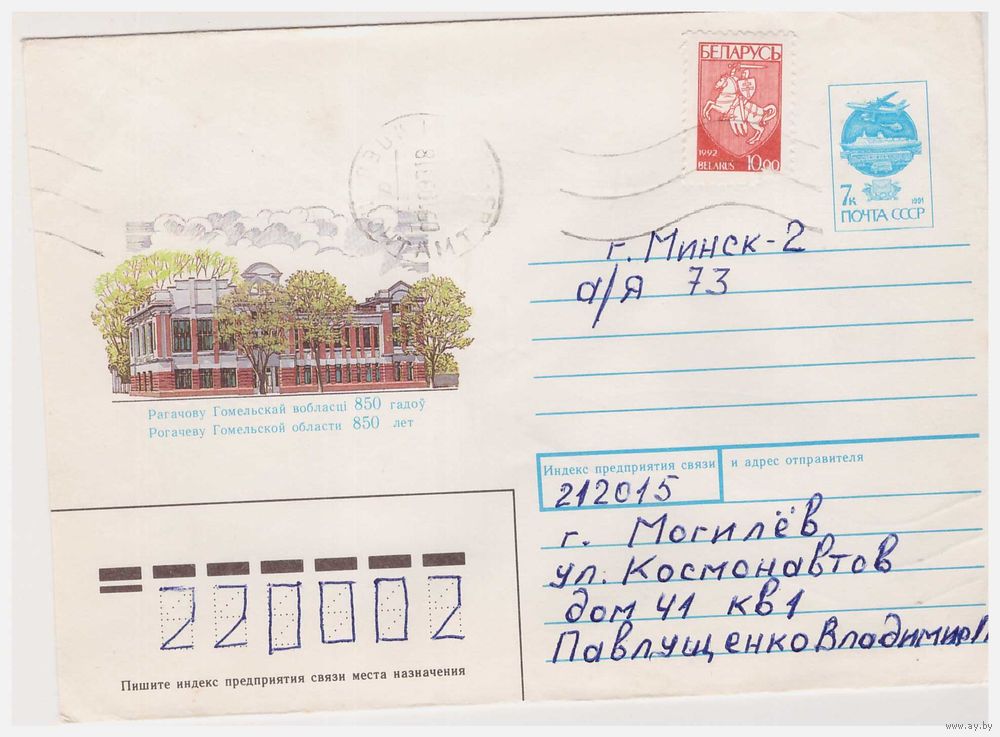 БЕЛАРУСЬ
1992 10.00
BELARUS
7к 1991
ПОЧТА СССР
г. Минск-2
а/я 73
Рагачову Гомельскай вобласці 850 гадоў
Рогачеву Гомельской области 850 лет
Индекс предприятия связи и адрес отправителя
212015
г. Могилёв
ул. Космонавтов
дом 41 кв 1
Павлущенко Владимир
220002
Пишите индекс предприятия связи места назначения
www.ay.by